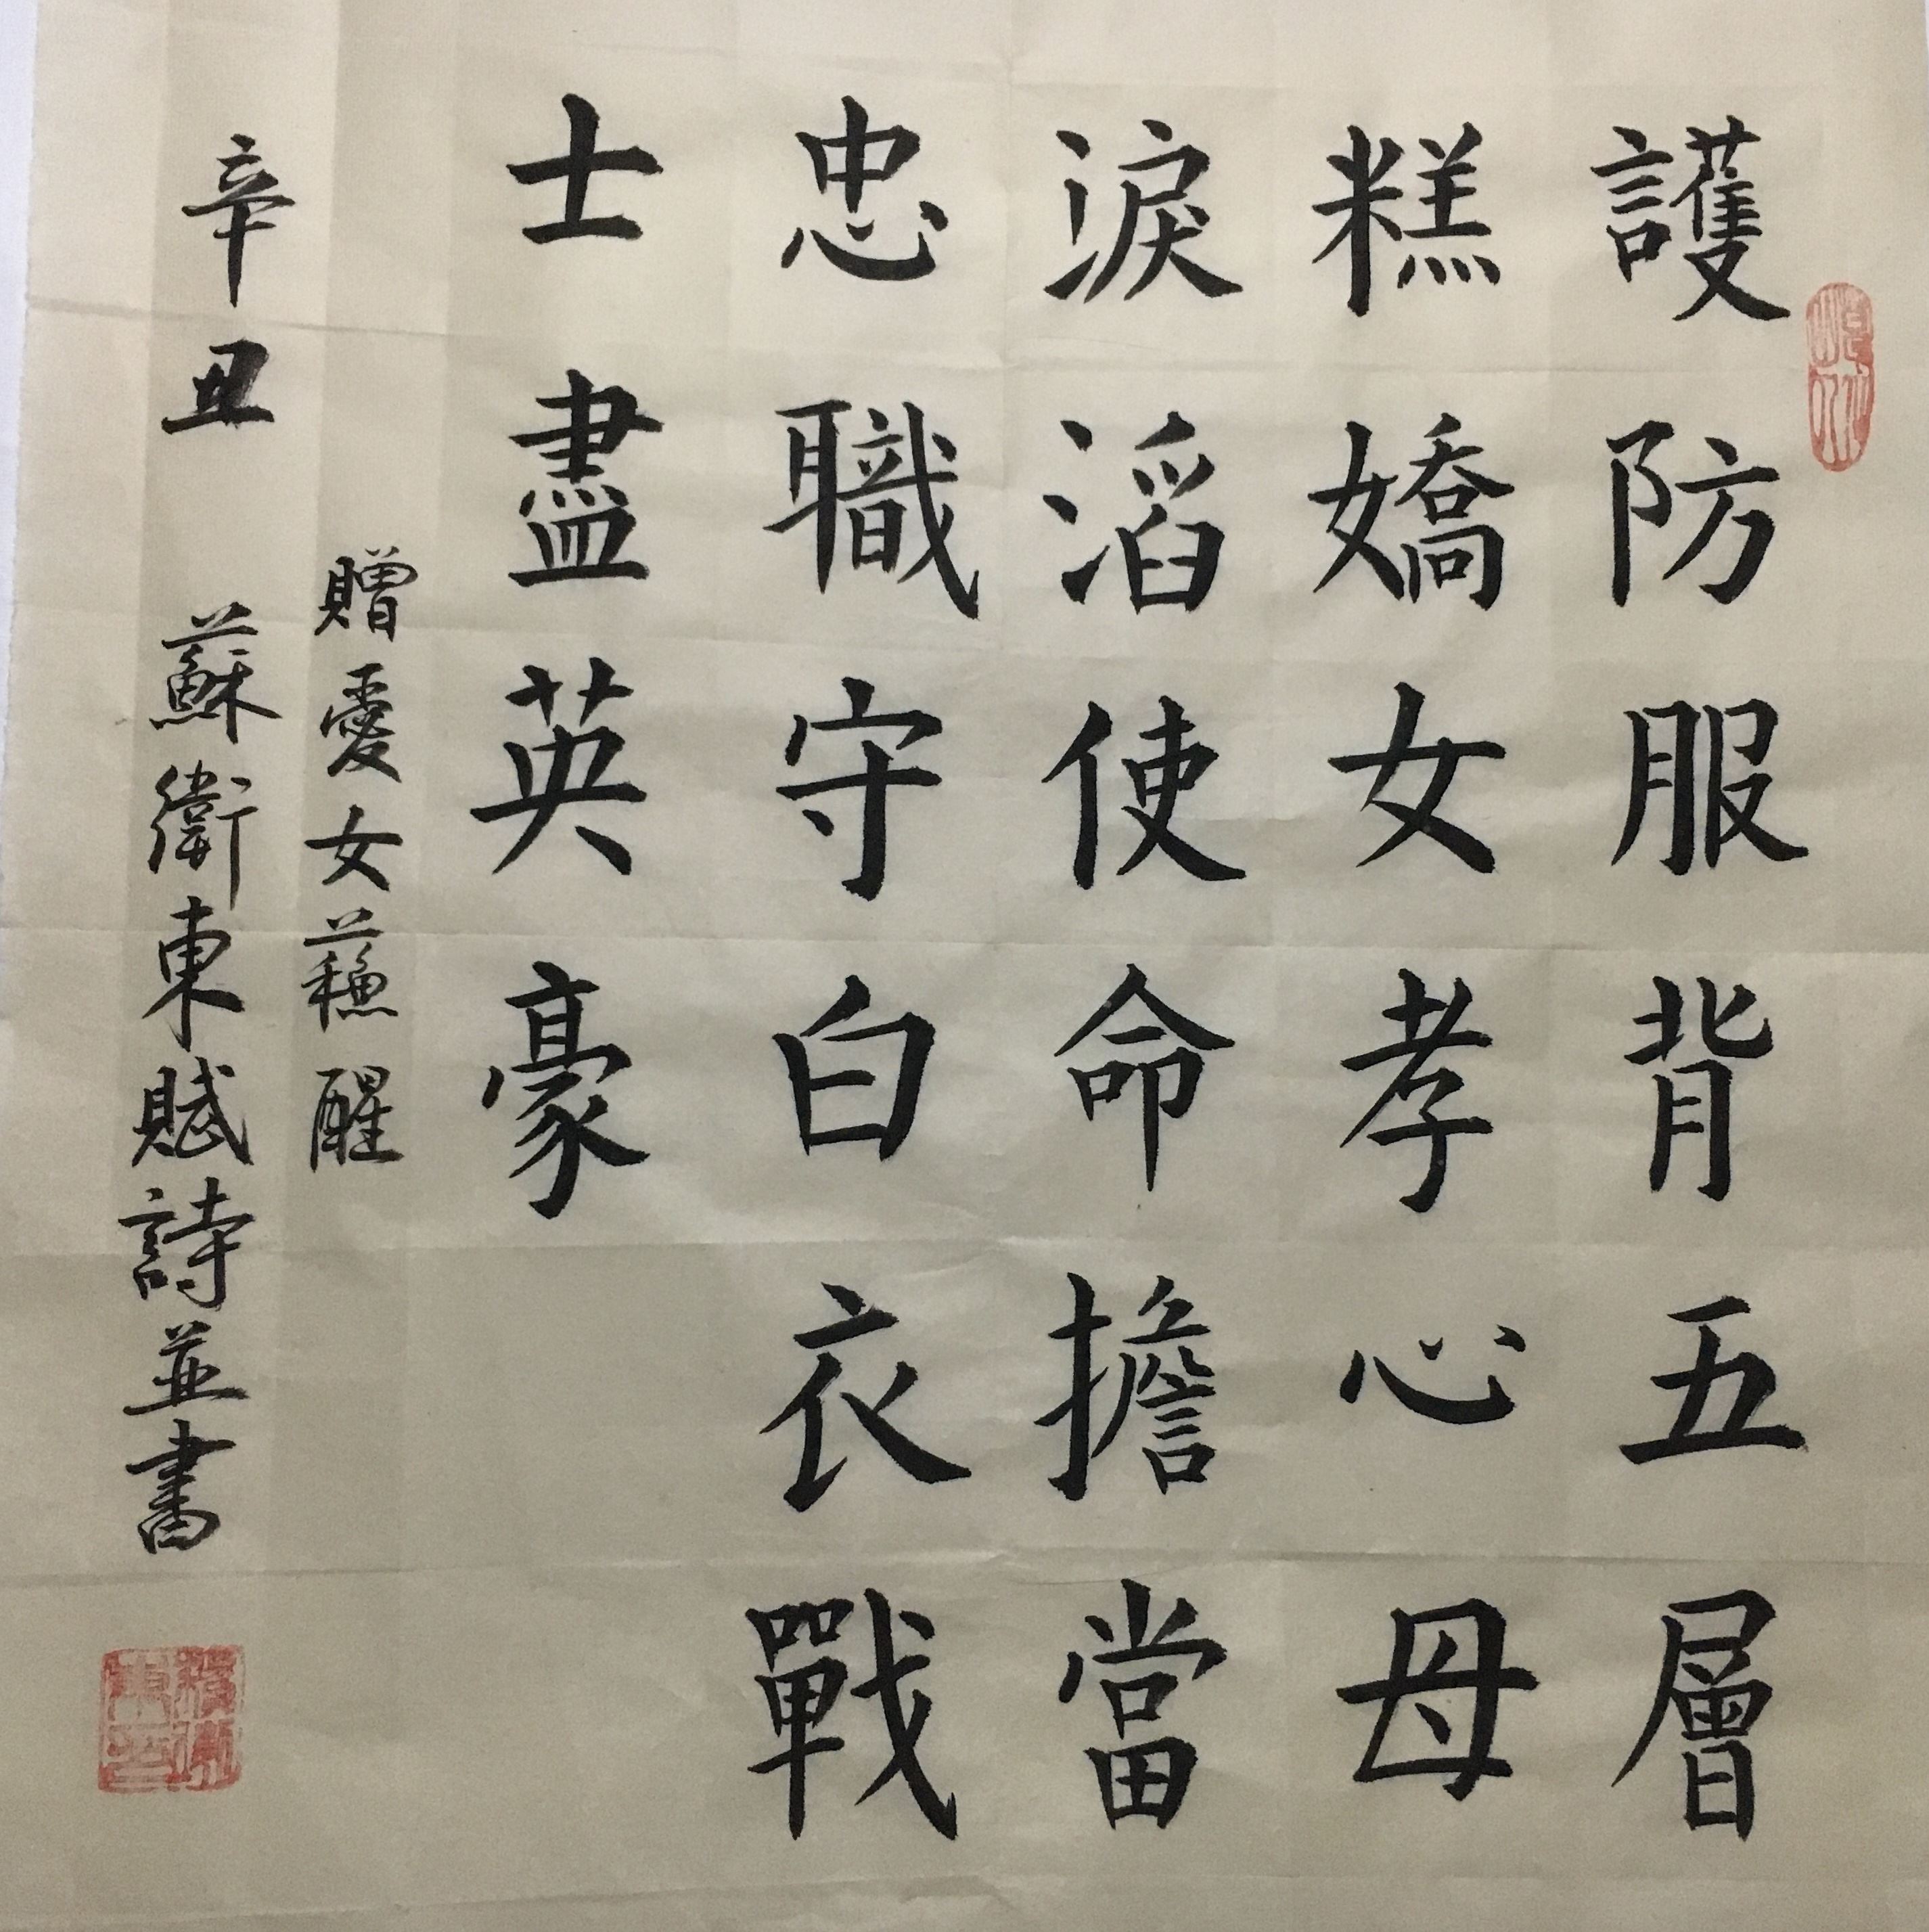 護防服背五層
糕嬌女孝心母
淚滔使命擔當
忠職守白衣戰
士盡英豪
贈愛女蘓醒
辛丑 蘇衛東賦詩並書